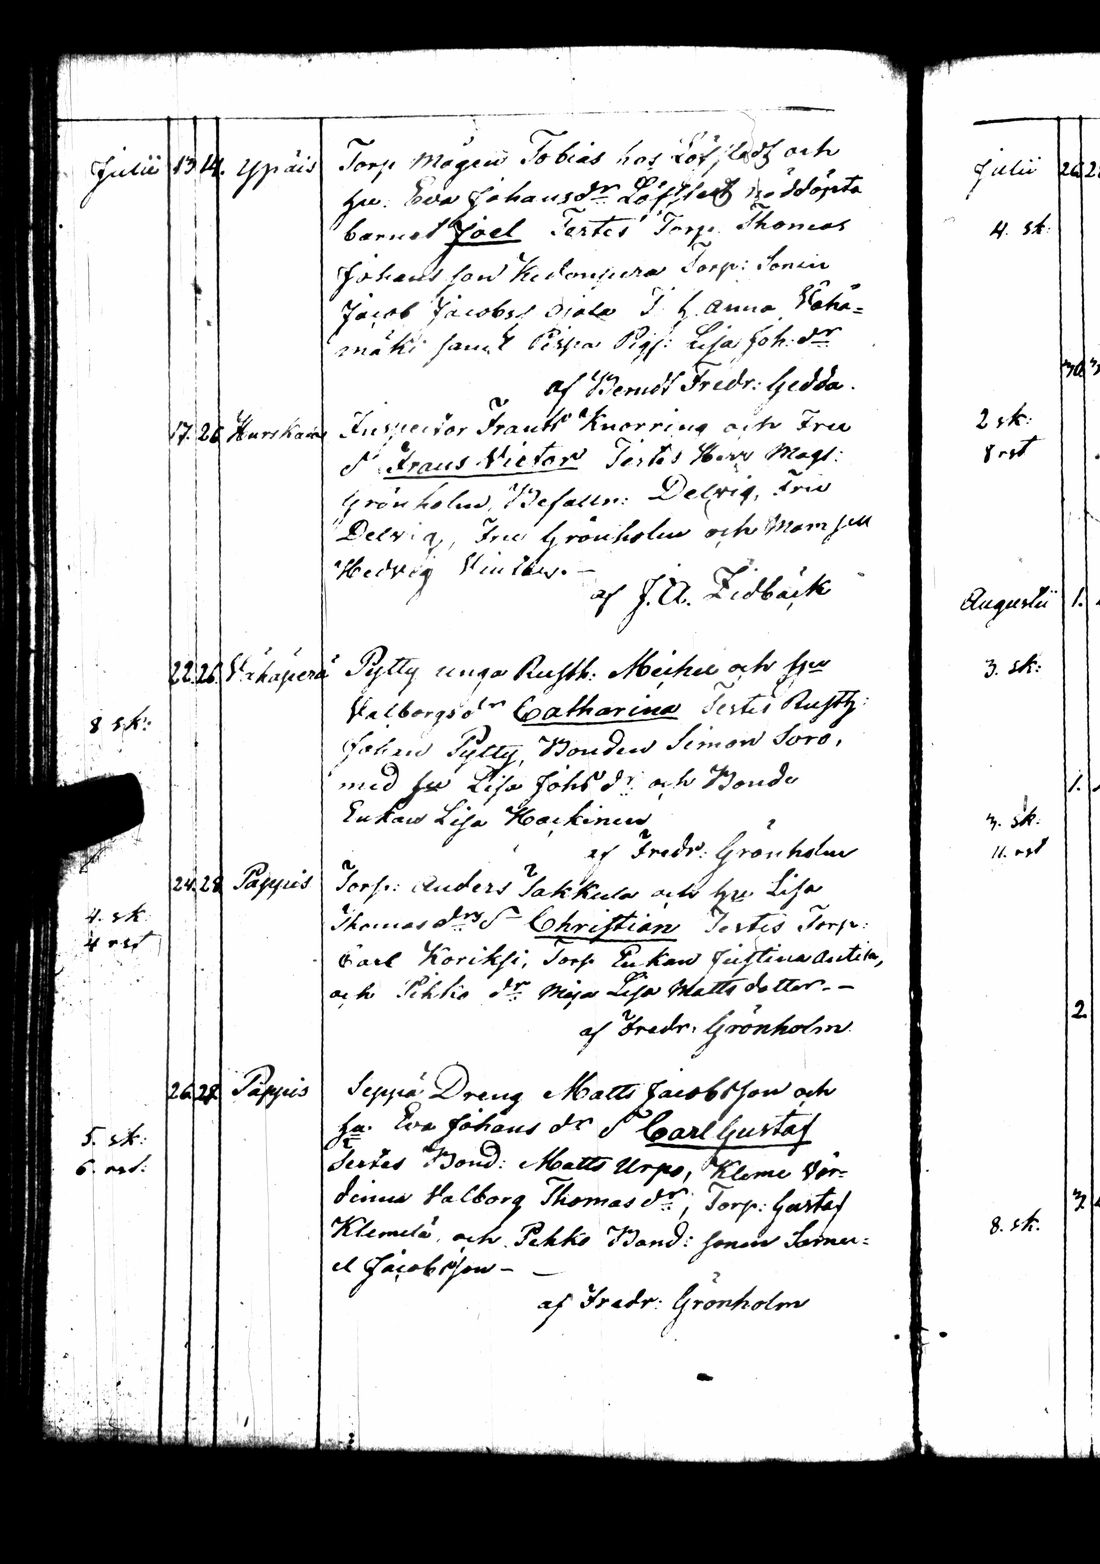 Julii 13. 14. Ypäis Torp Mågen Tobias hos Löfstedt och
hu. Eva Johansdr Löfstedt nöddöpta
barnet Joel Testes Torp. Thomas
Johansson Torp: Sonen
Jacob Jacobss Ojala Anna Vähä=
mäki samt Pispa Pig: Lisa Joh:dr
af Berndt Fredr: Gedda.
17. 26 Hurskala Inspector Frants Knorring och Fru
S Frans Victor Testes Herr Mags:
Grönholm, Befalln: Delvig, Fru
Delvig, Fru Grönholm och Mamsell
Hedvig
af J.A. Lidbäck
22. 26. Vähäperä Pytty unga Rusth: Michel och hu
Valborgsdr Catharina Testes Rusth:
Johan Pytty, Bonden Simon Soro,
med hu Lisa Johsdr och Bonde
8 sk:
Enkan Lisa Hackinen
af Fredr: Grönholm
24. 28 Pappis Torp: Anders Jakkula och hu Lisa
4. sk.
Thomasdr S Christian Testes Torp:
4 rst
Carl Koriksi, Torp Enkan Justina
och Pikko dr Maja Lisa Mattsdotter.-
af Fredr: Grönholm
26. 28. Pappis Seppä Dreng Matts Jacobsson och
5. sk:
hu. Eva Johansdr S Carl Gustaf
6. rst:
Testes Bond: Matts Urpo, Kleme Vär-
dinna Valborg Thomasdr, Torp: Gustaf
Klemelä, och Pekko Bond: sonen Samu=
el Jacobsson -
af Fredr: Grönholm
Julii 26.
4. sk:
30
2 sk:
8 rst
Augustii 1.
3. sk:
1.
3. sk:
11. rst
2
3.
8. sk: